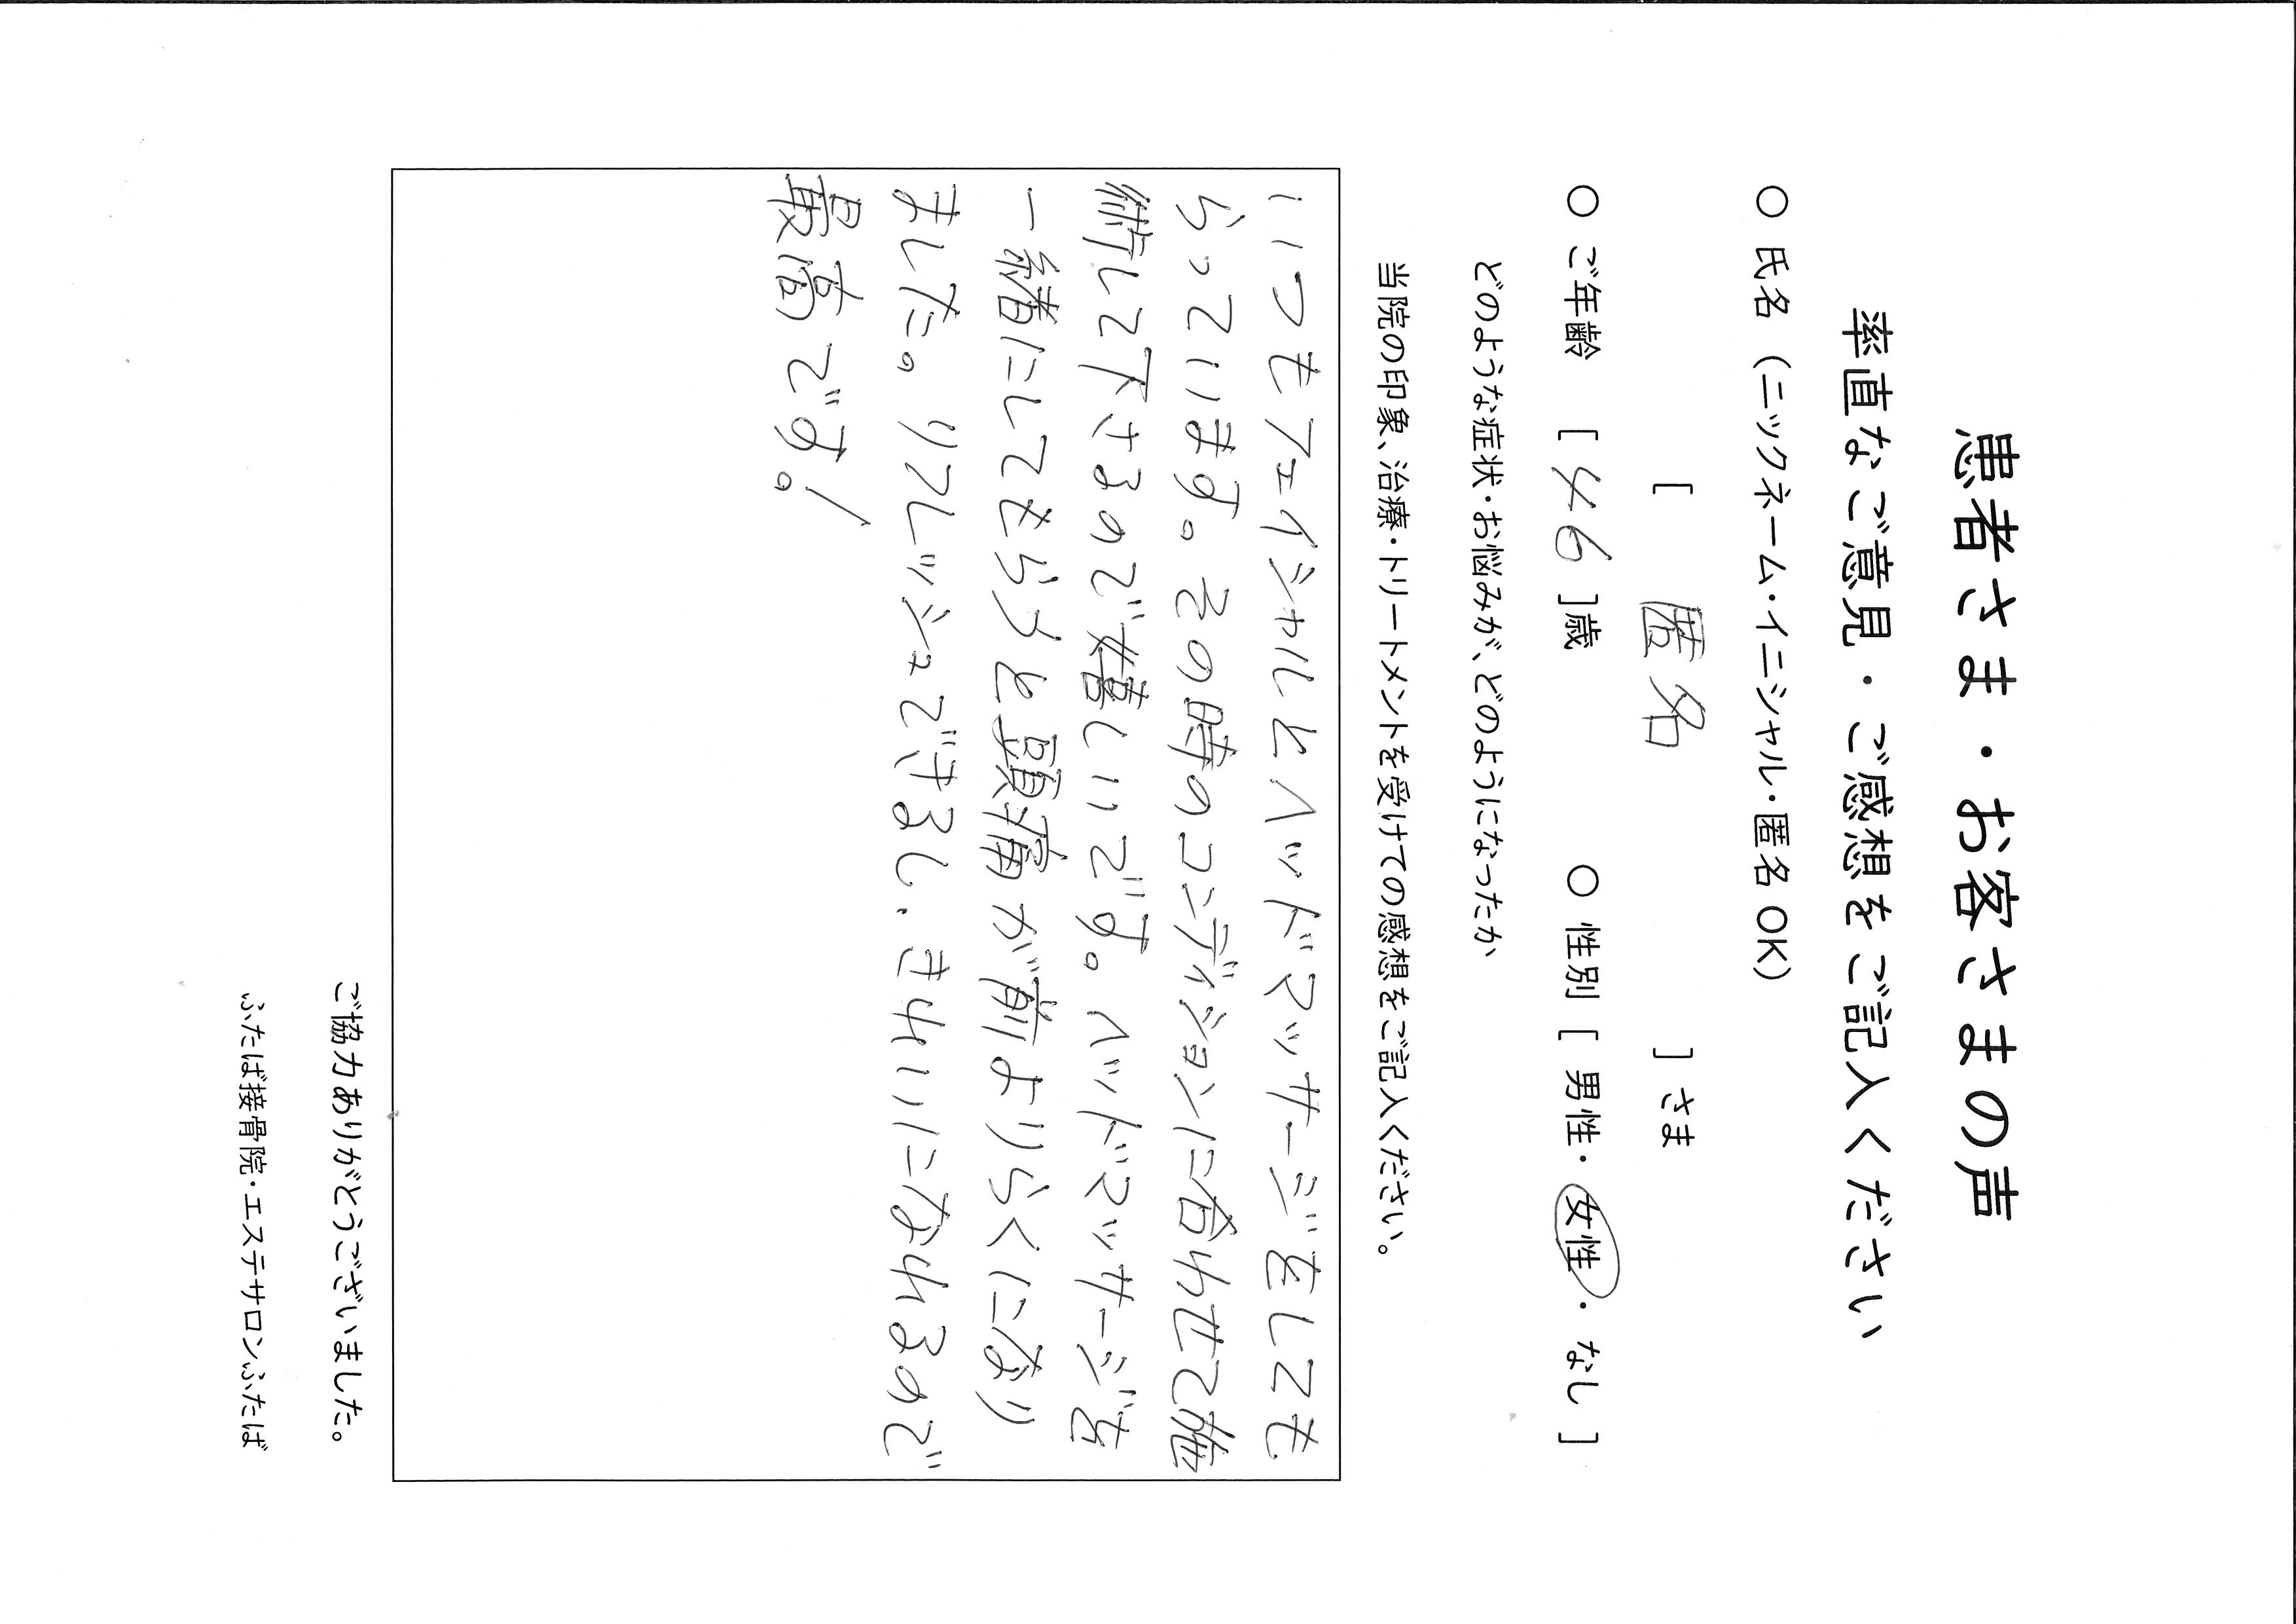 患者さま・お客さまの声
率直なご意見・ご感想をご記入ください
○ 氏名 (ニックネーム・イニシャル・匿名 OK)
[ 匿名 ] さま
○ ご年齢 [ 46 ]歳 ○ 性別 [ 男性・女性・なし ]
どのような症状・お悩みが、どのようになったか
当院の印象、治療・トリートメントを受けての感想をご記入ください。
いつもフェイシャルとヘッドマッサージをしても
らっています。その時のコンディションに合わせて施
術して下さるので嬉しいです。ヘッドマッサージを
一緒にしてもらうと頭痛が前よりらくになり
ました。リフレッシュできるし、きれいになれるので
最高です!
ご協力ありがとうございました。
ふたば接骨院・エステサロンふたば